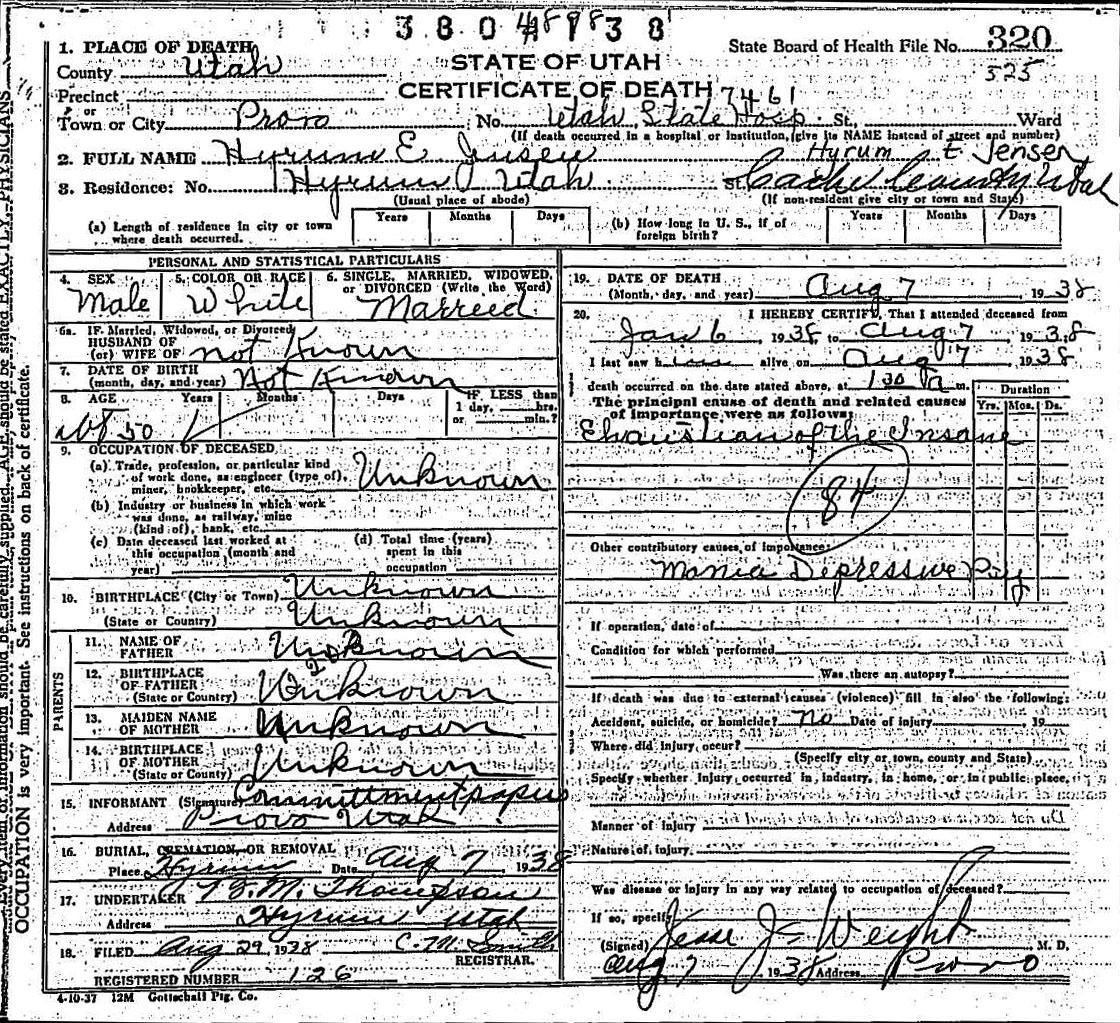 3 8 0 4 8 9 8 3 8
1. PLACE OF DEATH
State Board of Health File No. 320
County Utah
STATE OF UTAH
525
Precinct
CERTIFICATE OF DEATH
7461
or
Town or City Provo No. Utah State Hosp St., Ward
(If death occurred in a hospital or institution, give its NAME instead of street and number)
2. FULL NAME Hyrum E Jensen Hyrum E Jensen
3. Residence: No. Hyrum Utah St. Cache County Utah
(Usual place of abode) (If non-resident give city or town and State)
(a) Length of residence in city or town where death occurred. Years Months Days (b) How long in U. S., if of foreign birth? Years Months Days
PERSONAL AND STATISTICAL PARTICULARS
4. SEX 5. COLOR OR RACE 6. SINGLE, MARRIED, WIDOWED, or DIVORCED (Write the Word)
Male White Marreed
6a. IF Married, Widowed, or Divorced
HUSBAND OF
(or) WIFE OF not Known
7. DATE OF BIRTH
(month, day, and year) Not Known
8. AGE Years Months Days IF LESS than
1 day, hrs.
or min.?
abt 50
9. OCCUPATION OF DECEASED
(a) Trade, profession, or particular kind
of work done, as engineer (type of),
miner, bookkeeper, etc. Unknown
(b) Industry or business in which work
was done, as railway, mine
(kind of), bank, etc.
(c) Date deceased last worked at
this occupation (month and
year)
(d) Total time (years)
spent in this
occupation
10. BIRTHPLACE (City or Town) Unknown
(State or Country) Unknown
PARENTS
11. NAME OF
FATHER Unknown
12. BIRTHPLACE
OF FATHER
(State or Country) Unknown
13. MAIDEN NAME
OF MOTHER Unknown
14. BIRTHPLACE
OF MOTHER
(State or County) Unknown
15. INFORMANT (Signature) Committment papers
Address Provo Utah
16. BURIAL, CREMATION, OR REMOVAL
Place Hyrum Date Aug 7 1938
17. UNDERTAKER M. Thompson
Address Hyrum Utah
18. FILED Aug 29, 1938 C. M. Smith
REGISTRAR.
REGISTERED NUMBER 126
4-10-37 12M Gottschall Ptg. Co.
19. DATE OF DEATH
(Month, day, and year) Aug 7 1938
20. I HEREBY CERTIFY, That I attended deceased from
Jan 6, 1938, to Aug 7, 1938
I last saw him alive on Aug 7, 1938
death occurred on the date stated above, at 1 30 m.
The principal cause of death and related causes
of importance were as follows:
Duration
Yrs. Mos. Ds.
Ehaustian of the Insane
84
Other contributory causes of importance:
Mania Depressive Psy
If operation, date of
Condition for which performed
Was there an autopsy?
If death was due to external causes (violence) fill in also the following:
Accident, suicide, or homicide? no Date of injury , 19
Where did injury occur?
(Specify city or town, county and State)
Specify whether injury occurred in industry, in home, or in public place,
Manner of injury
Nature of injury
Was disease or injury in any way related to occupation of deceased?
If so, specify
(Signed) Jesse J Weight M. D.
Aug 7 1938 Address Provo
OCCUPATION is very important. See instructions on back of certificate.
information should be carefully supplied. AGE should be stated EXACTLY. PHYSICIANS